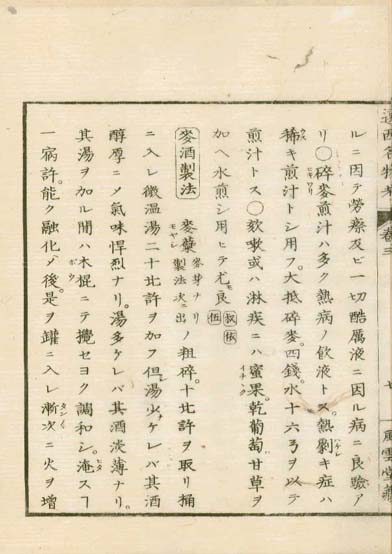 遠西名物考 卷三
風雲堂藏
ルニ因テ勞療及ビ一切酷厲液ニ因ル病ニ良驗ア
リ○碎麥煎汁ハ多ク熱病ノ飲液トス。熱劇キ症ハ
稀キ煎汁トシ用フ。大抵碎麥。四錢。水十六ヲ以テ
煎汁トス○欬嗽或ハ淋疾ニハ蜜果。乾葡萄甘草ヲ
加ヘ水煎シ用ヒテ尤良
麥酒製法 麥櫱 麥芽ナリ 製法次ニ出 ノ粗碎。十比許ヲ取リ桶
ニ入レ微温湯二十比許ヲ加フ但湯少ケレバ其酒
醇厚ニメ氣味悍烈ナリ。湯多ケレバ其酒淡薄ナリ。
其湯ヲ加ル間ハ木棍ニテ攪セヨク調和シ。淹スヿ
一宿許。能ク融化ノ後。是ヲ罐ニ入レ漸次ニ火ヲ增